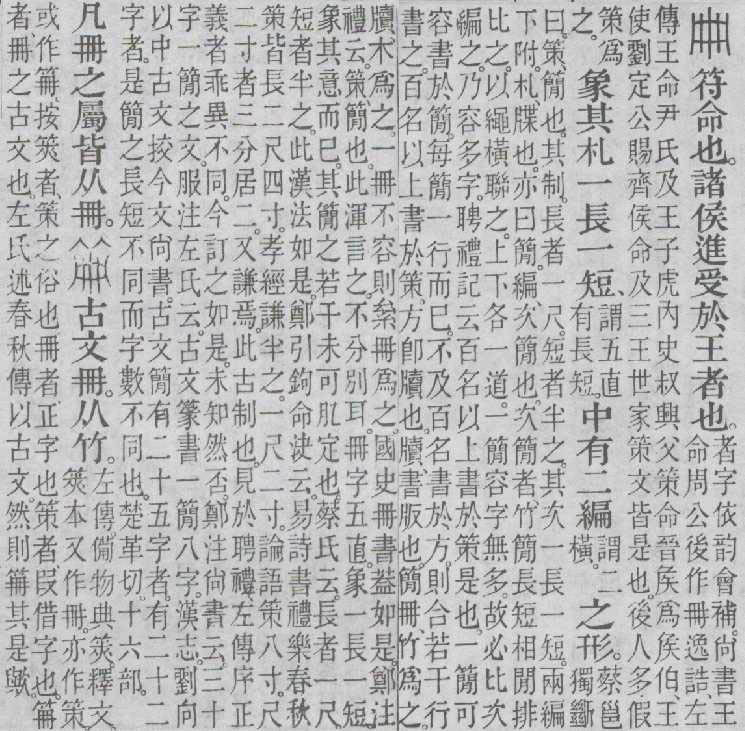 冊符命也。諸侯進受於王者也。者字依韵會補。尚書王
命周公後作冊逸誥。左
傳王命尹氏及王子虎內史叔興父策命晉矦爲矦伯。王
使劉定公賜齊侯命。及三王世家策文皆是也。後人多假
策爲
之。
象其札一長一短、謂五直
有長短。
中有二編謂二
橫。
之形。蔡邕
獨斷
曰。策、簡也。其制、長者一尺。短者半之。其次一長一短。兩編
下附。札、牒也。亦曰簡。編、次簡也。次簡者、竹簡長短相閒排
比之。以繩橫聯之。上下各一道。一簡容字無多。故必比次
編之。乃容多字。聘禮記云。百名以上書於策是也。一簡可
容書於簡。每簡一行而已。不及百名書於方。則合若干行
書之。百名以上書於策。方卽牘也。牘、書版也。簡冊竹爲之。
牘、木爲之。一冊不容則絫冊爲之。國史冊書葢如是。鄭注
禮云。策、簡也。此渾言之、不分別耳。冊字五直。象一長一短。
象其意而已。其簡之若干未可肊定也。蔡氏云。長者一尺。
短者半之。此漢法如是。鄭引鉤命決云。易詩書禮樂春秋
策皆長二尺四寸。孝經謙半之。一尺二寸。論語策八寸。尺
二寸者三分居二。又謙焉。此古制也。見於聘禮、左傳序正
義者乖異不同。今訂之如是。未知然否。鄭注尚書云。三十
字一簡之文。服注左氏云。古文篆書一簡八字。漢志。劉向
以中古文挍今文尚書。古文簡有二十五字者。有二十二
字者。是簡之長短不同而字數不同也。楚革切。十六部。
凡冊之屬皆从冊。笧古文冊。从竹。左傳。備物典筴。釋文
筴本又作冊。亦作策。
或作笧。按筴者、策之俗也。冊者、正字也。策者、叚借字也。笧
者、冊之古文也。左氏述春秋傳以古文。然則笧其是歟。